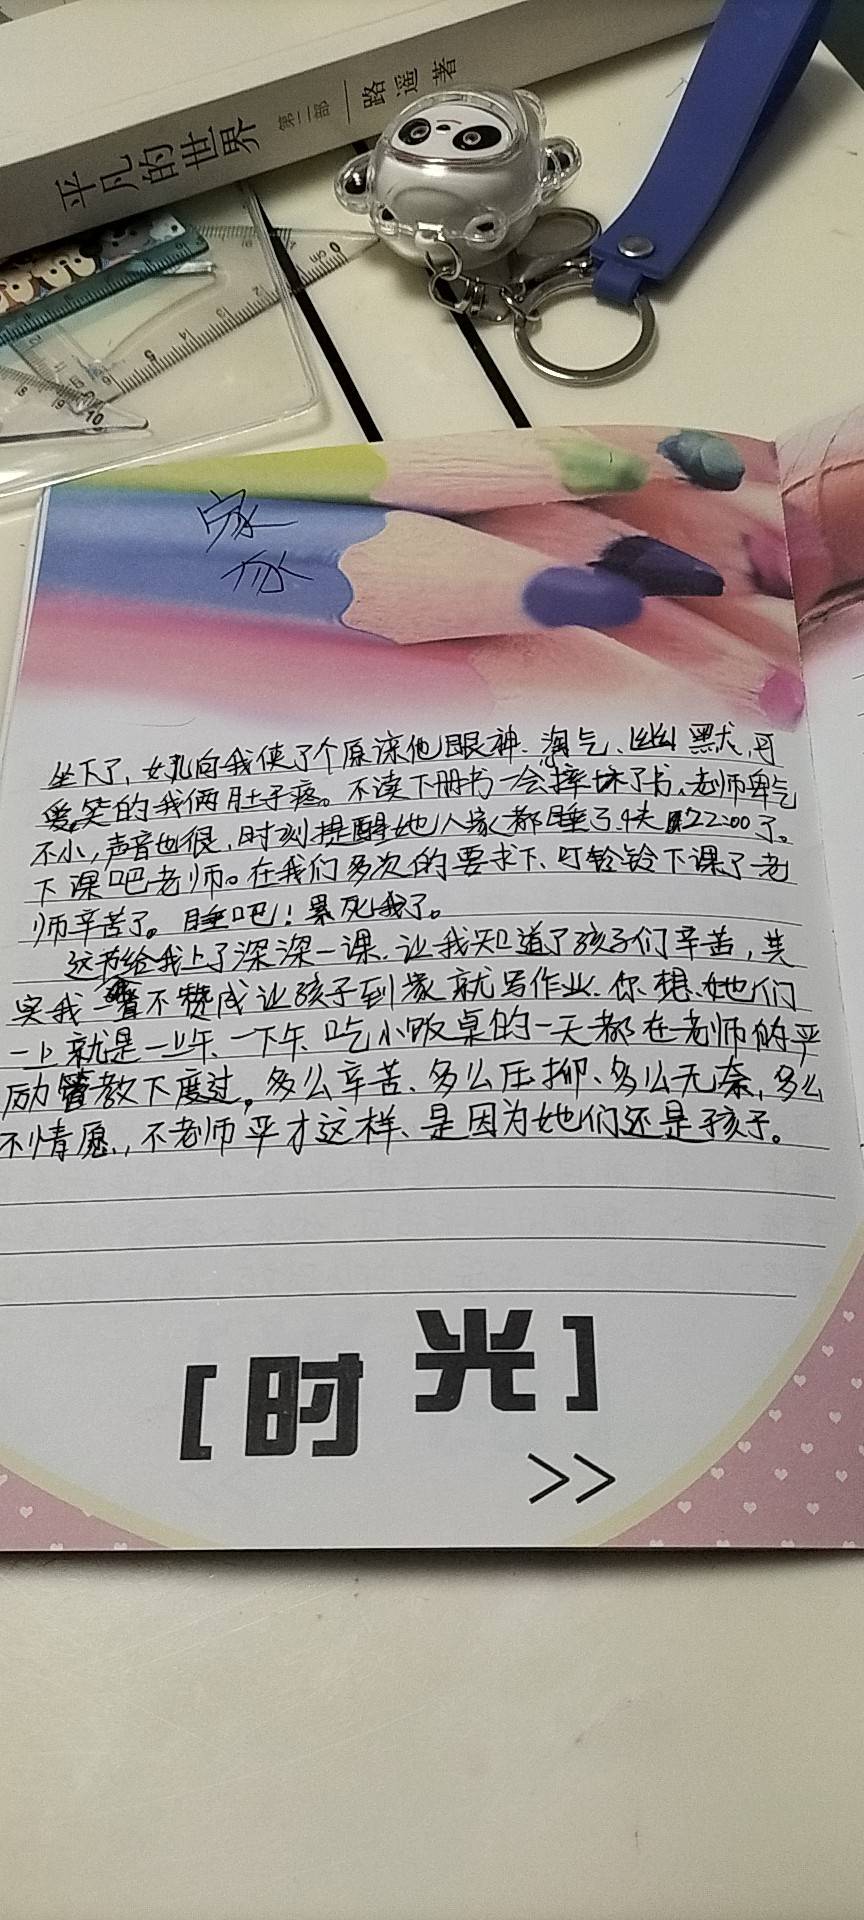 平凡的世界 第二部 路遥 著
家
坐下了,女儿向我使了个原谅他眼神、淘气、幽默,可
爱,笑的我俩肚子疼。不读下册书一会摔坏了书,老师脾气
不小,声音也很,时刻提醒她人家都睡了快22:00了。
下课吧老师。在我们多次的要求下、叮铃铃下课了老
师辛苦了。睡吧!累死我了。
这节给我上了深深一课,让我知道了孩子们辛苦,其
实我一不赞成让孩子到家就写作业、你想、她们
一上就是一上午、一下午、吃小饭桌的一天都在老师的严
厉管教下度过。多么辛苦、多么压抑、多么无奈,多么
不情愿,不老师严才这样、是因为她们还是孩子。
[时光]
>>